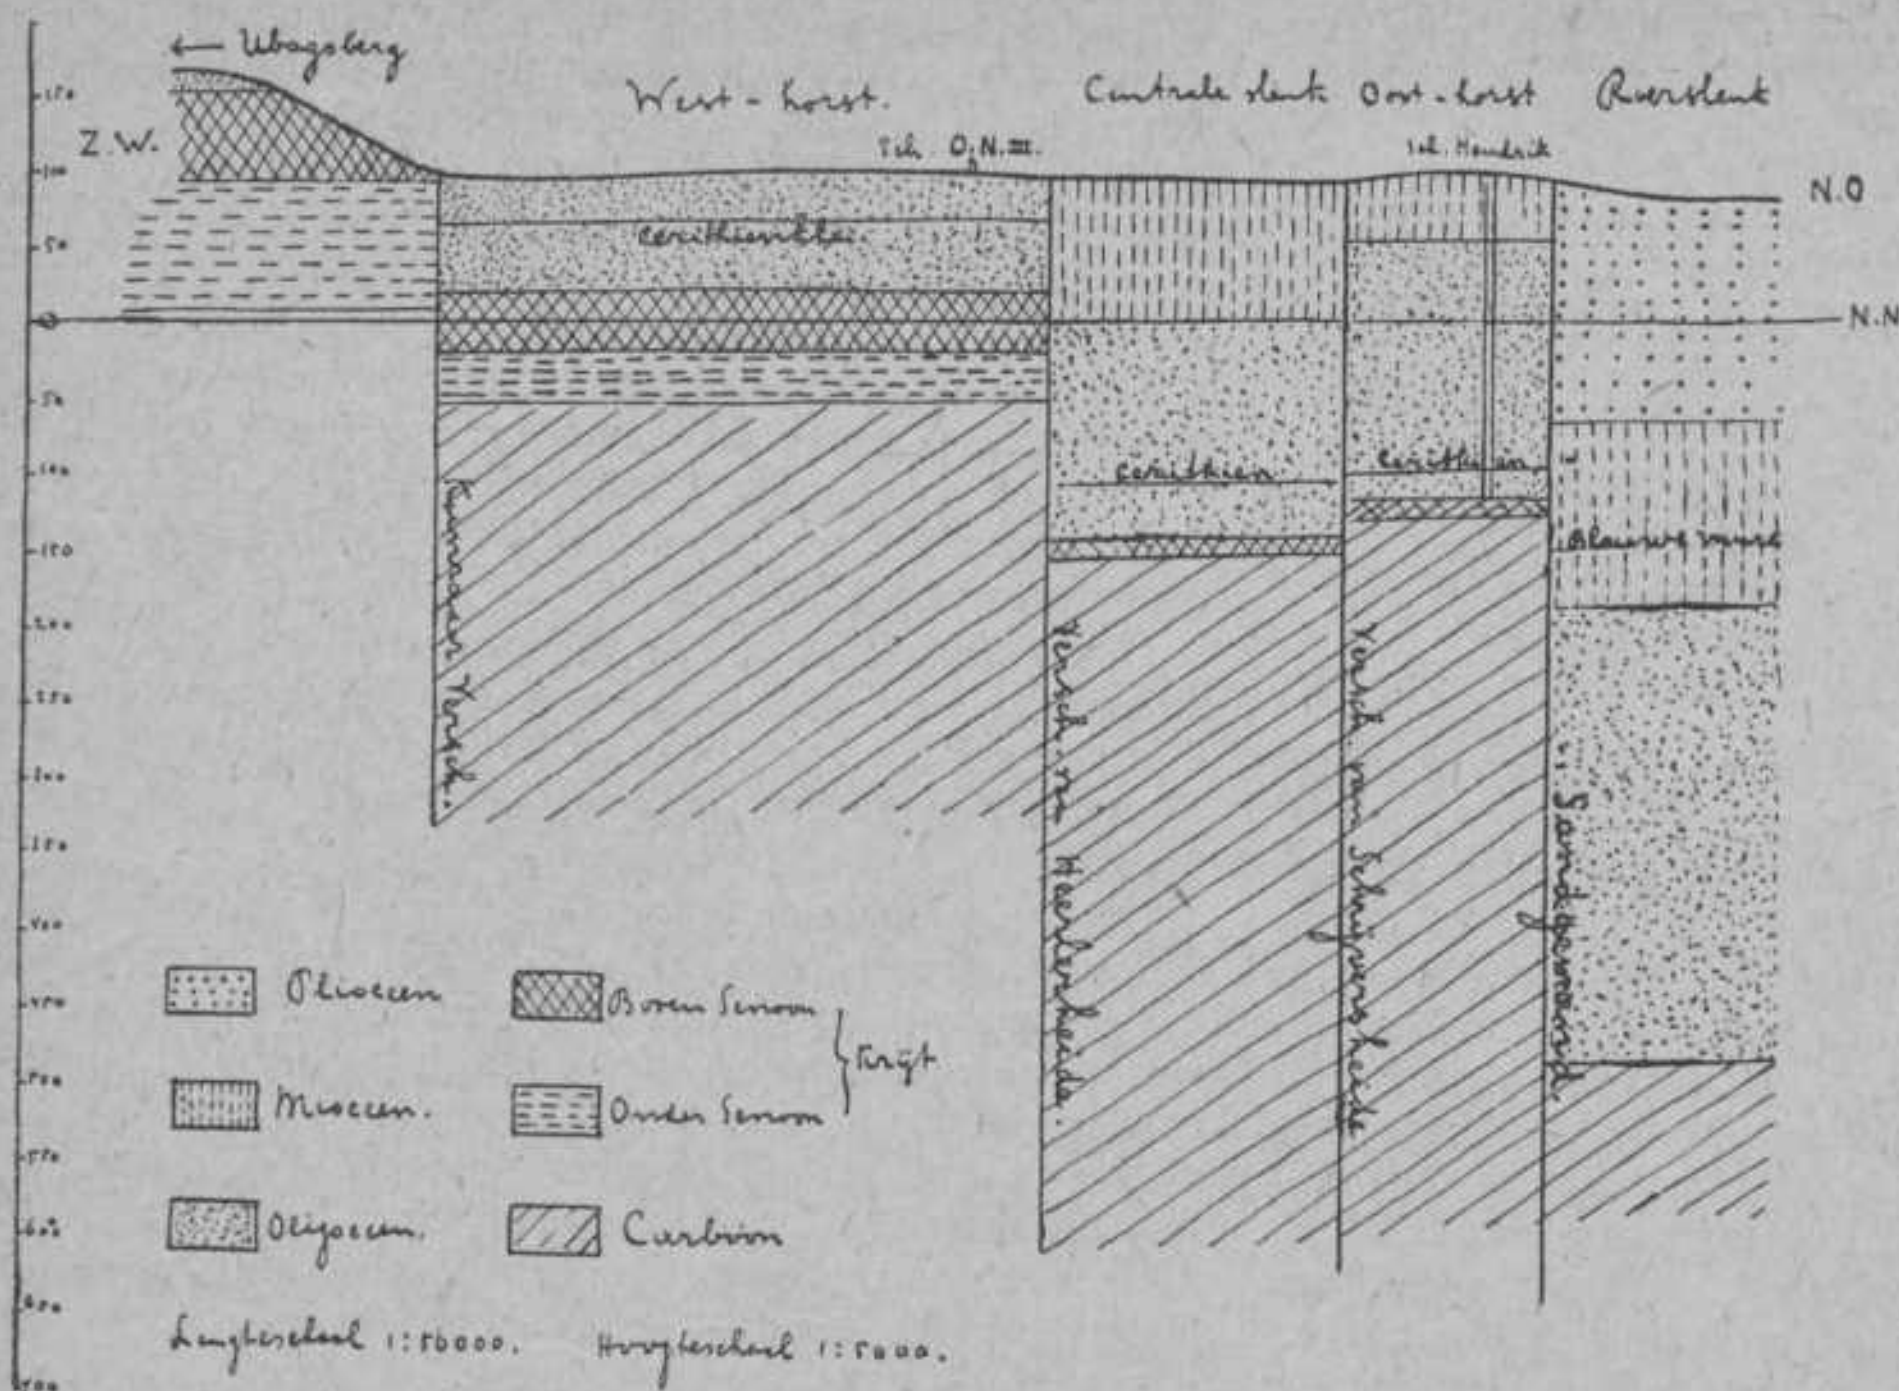 ← Ubagsberg
West-horst.
Centrale slenk
Oost-horst
Roerslenk
Z.W.
Sch. O.N.III.
Sch. Hendrik
N.O
150
100
50
0
50
100
150
200
250
300
350
400
450
500
550
600
650
700
N.N
cerithienklei
cerithien
cerithien
Blauwe
Kunrader Versch.
Versch. van Heerlerheide.
Versch. van Schrijversheide
Sandgewand.
Plioceen
Mioceen.
Oligoceen.
Boven Senoon
Onder Senoon
Krijt
Carboon
Lengteschaal 1:50000.
Hoogteschaal 1:5000.